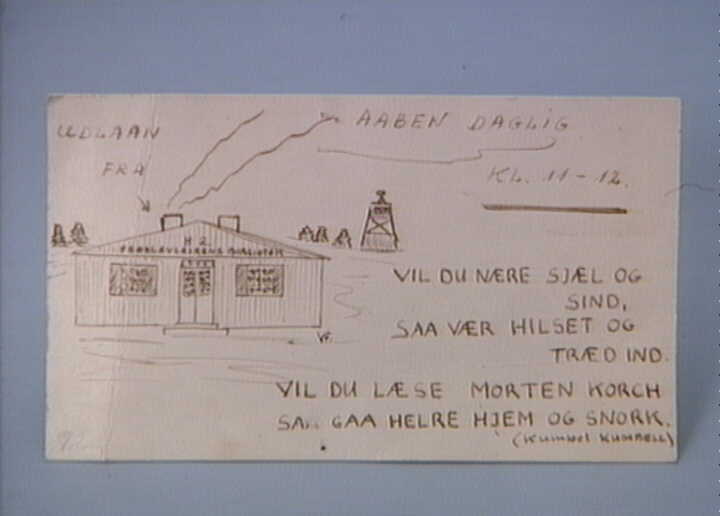 UDLAAN
FRA
AABEN DAGLIG
KL. 11-12.
H 2
FRØSLEVLEJRENS BIBLIOTEK
VIL DU NÆRE SJÆL OG
SIND,
SAA VÆR HILSET OG
TRÆD IND.
VIL DU LÆSE MORTEN KORCH
SAA GAA HELRE HJEM OG SNORK.
(KUMBEL KUMBELL)